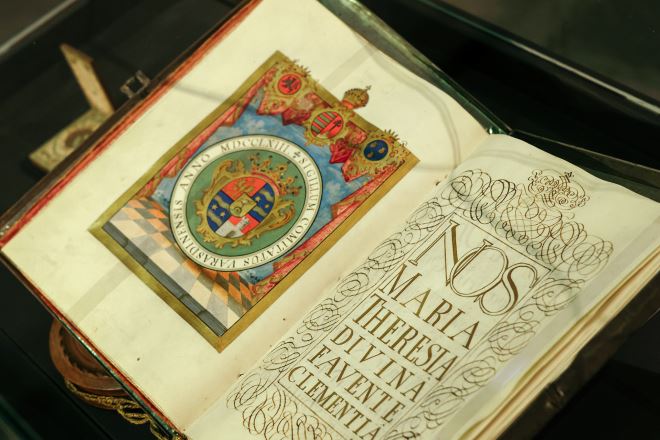 SIGILLUM COMITATUS VARASDINENSIS ANNO MDCCLXIII.
NOS
MARIA
THERESIA
DIVINA
FAVENTE
CLEMENTIA